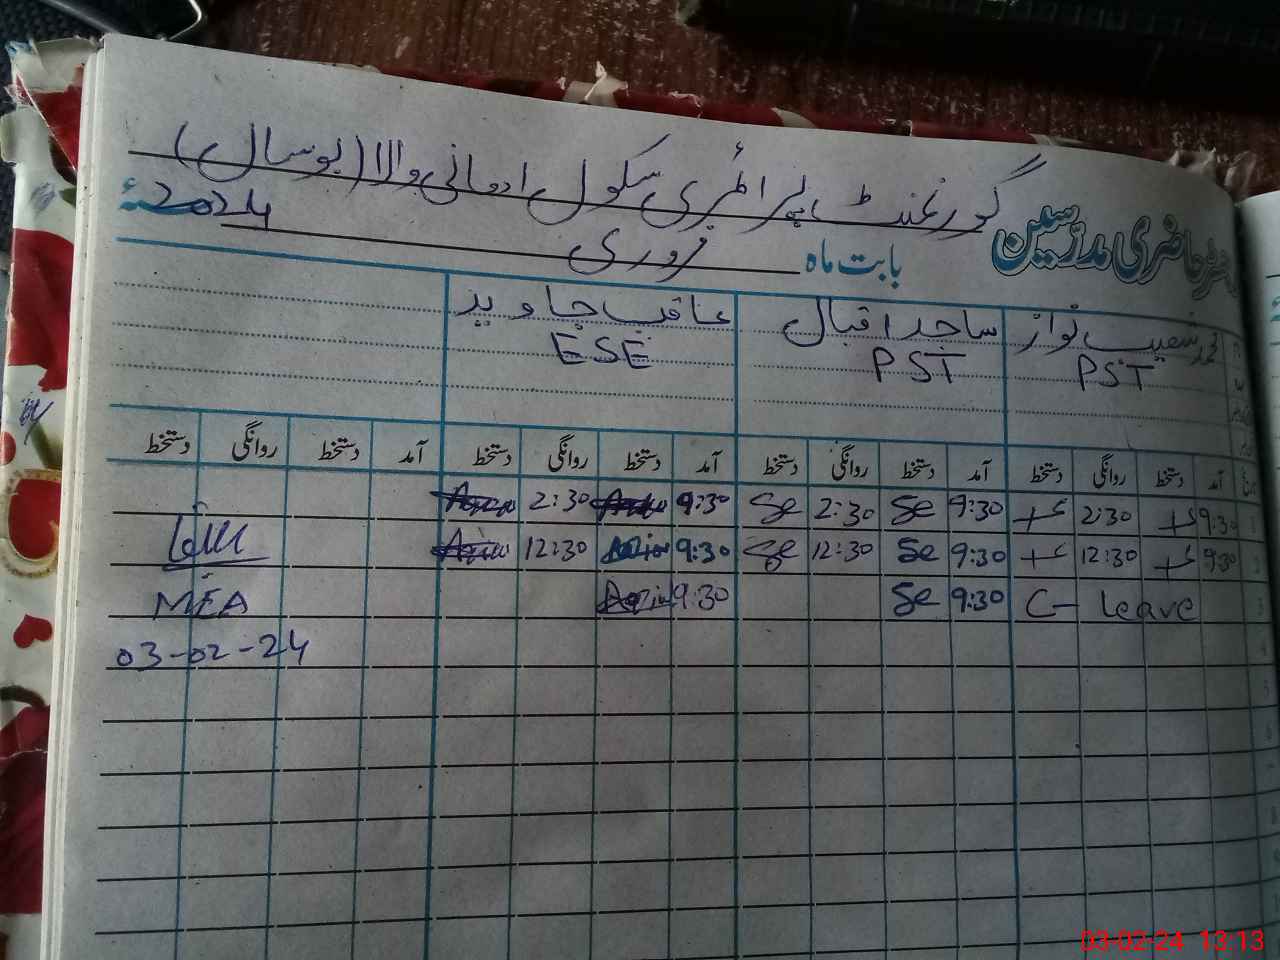 گورنمنٹ پرائمری سکول ادمانی والا (بوسال)
رجسٹر حاضری مدرسین
بابت ماہ فروری 2024ء
محمد شعیب نواز ساجد اقبال عاقب جاوید
PST PST ESE
آمد دستخط روانگی دستخط آمد دستخط روانگی دستخط آمد دستخط روانگی دستخط آمد دستخط روانگی دستخط
1 9:30 2:30 9:30 Se 2:30 Se 9:30 2:30
2 9:30 12:30 9:30 Se 12:30 Se 9:30 12:30
3 C- Leave 9:30 Se 9:30
MEA
4
03-02-24
5
6
03-02-24 13:13